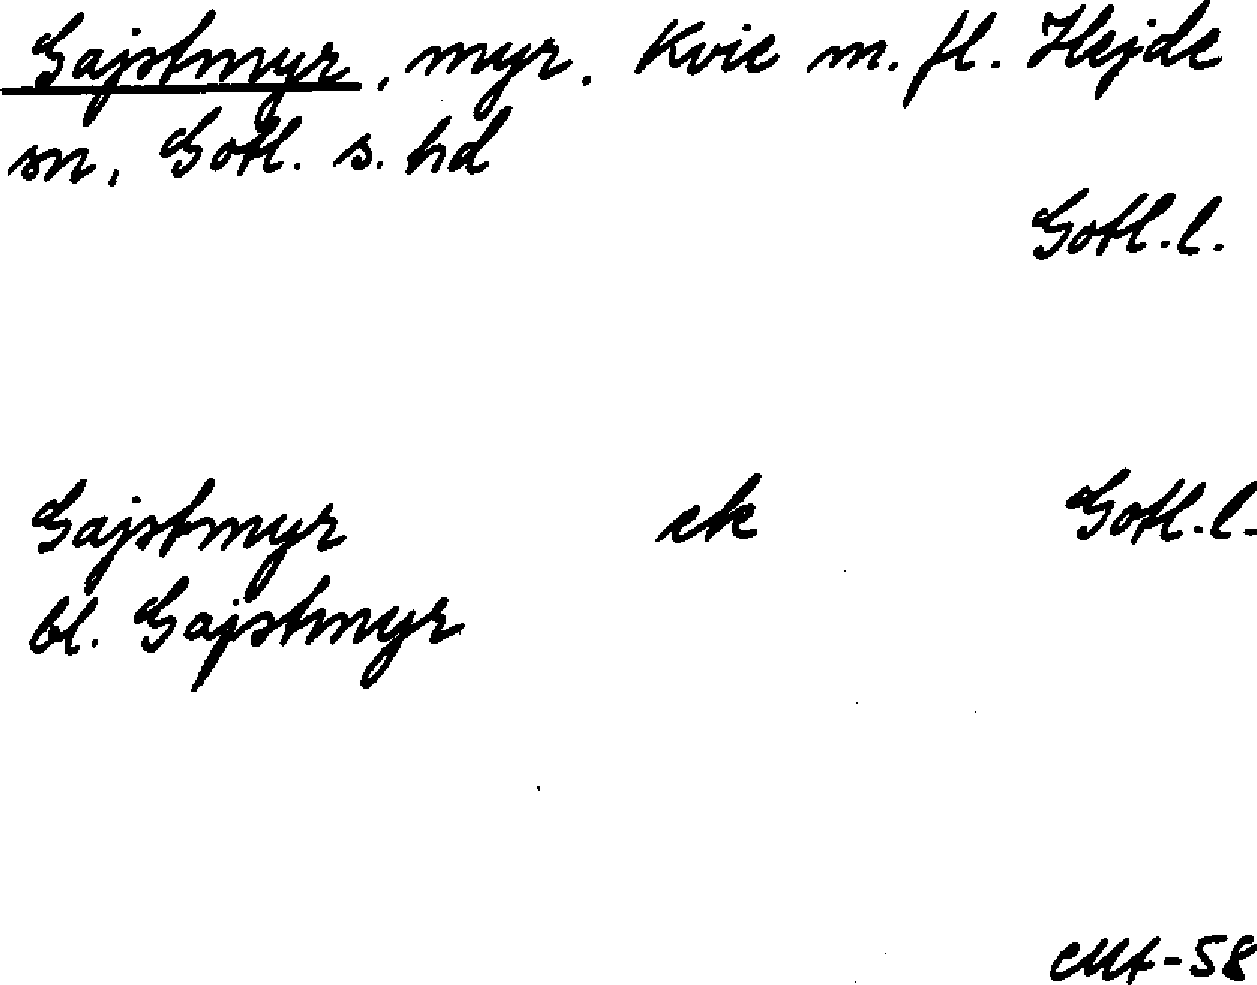 Gajstmyr, myr. Kvie m. fl. Hejde
sn, Gotl. s. hd
Gotl. l.
Gajstmyr ek Gotl. l.
bl. Gajstmyr